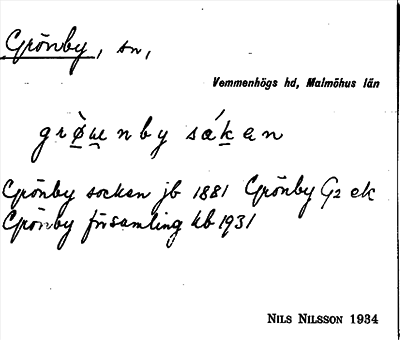 Grönby, sn,
Vemmenhögs hd, Malmöhus län
grò̱u̱enby sákan
Grönby socken jb 1881 Grönby G2 ek
Grönby församling kb 1931
NILS NILSSON 1934